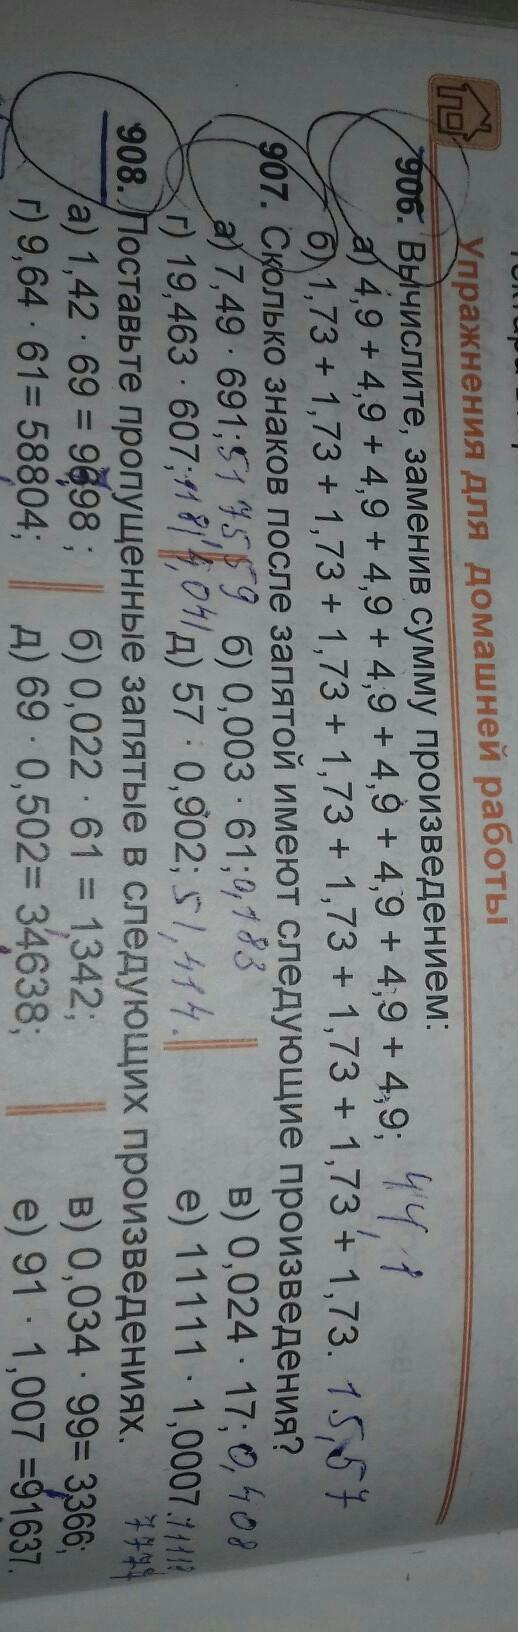 Упражнения для домашней работы
906. Вычислите, заменив сумму произведением:
а) 4,9 + 4,9 + 4,9 + 4,9 + 4,9 + 4,9 + 4,9 + 4,9 + 4,9; 44,1
б) 1,73 + 1,73 + 1,73 + 1,73 + 1,73 + 1,73 + 1,73 + 1,73 + 1,73. 15,57
907. Сколько знаков после запятой имеют следующие произведения?
а) 7,49 · 691; 5175,59 б) 0,003 · 61; 0,183 в) 0,024 · 17; 0,408
г) 19,463 · 607; д) 57 · 0,902; 51,414. е) 11111 · 1,0007.
908. Поставьте пропущенные запятые в следующих произведениях.
а) 1,42 · 69 = 9698; б) 0,022 · 61 = 1342; в) 0,034 · 99 = 3366;
г) 9,64 · 61 = 58804; д) 69 · 0,502 = 34638; е) 91 · 1,007 = 91637.